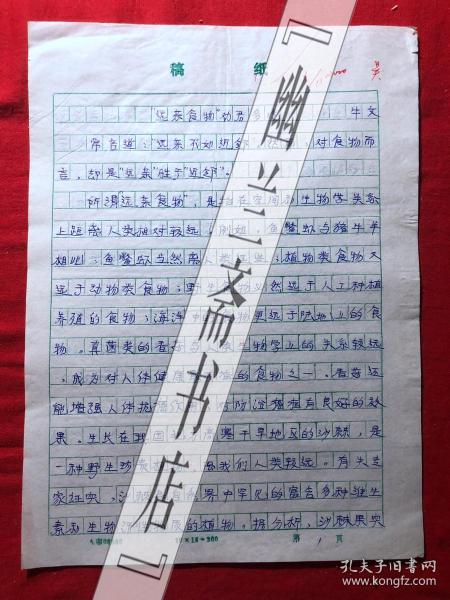 稿 纸
"远亲食物"功方多 牛文
常言道:"远亲不如近邻",对食物而
言,却是"远亲"胜于"近邻"。
所谓"远亲食物",是指在空间和生物学关系
上距离人类相对较远。例如,鱼鳖虾与猪牛羊
相比,鱼鳖虾当然离人类远些;植物类食物又
远于动物类食物;野生食物必然远于人工种植
养殖的食物;海洋中食物更远于陆地上的食
物。真菌类的香菇与人类生物学上的关系较远
,成为对人体健康的食物之一。香菇还
能增强人体抗癌防治癌症有良好的效
果。生长在我国高寒干旱地区的沙棘,是
一种野生珍果离我们人类较远。有关专
家证实,沙棘是自然界中罕见的富含多种维生
素和生物活性的植物。据分析,沙棘果实
18=300
第 1 页
『幽兰斋书店』
孔夫子旧书网
book.kongfz.com